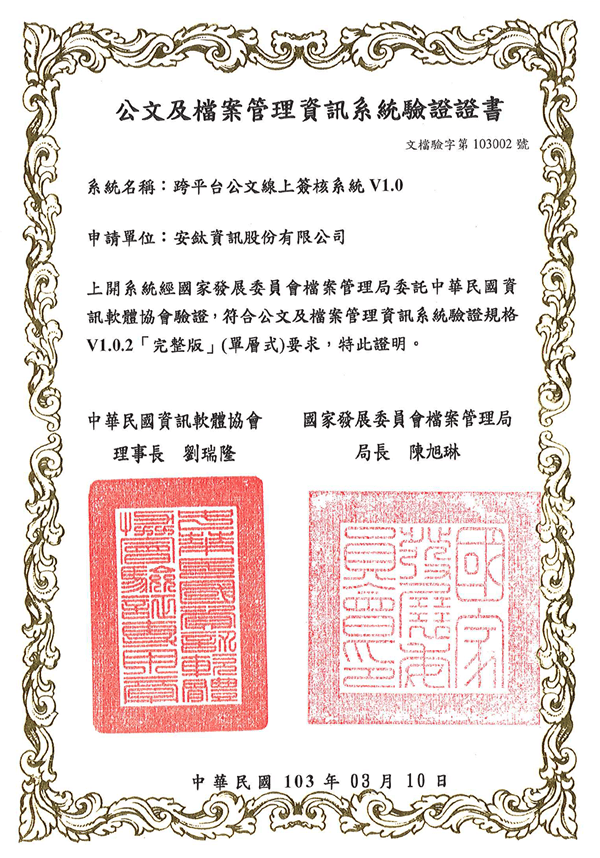 公文及檔案管理資訊系統驗證證書
文檔驗字第 103002 號
系統名稱：跨平台公文線上簽核系統 V1.0
申請單位：安鈦資訊股份有限公司
上開系統經國家發展委員會檔案管理局委託中華民國資
訊軟體協會驗證，符合公文及檔案管理資訊系統驗證規格
V1.0.2「完整版」(單層式)要求，特此證明。
中華民國資訊軟體協會
理事長 劉瑞隆
國家發展委員會檔案管理局
局長 陳旭琳
國家
發展委
員會印
中華民國 103 年 03 月 10 日